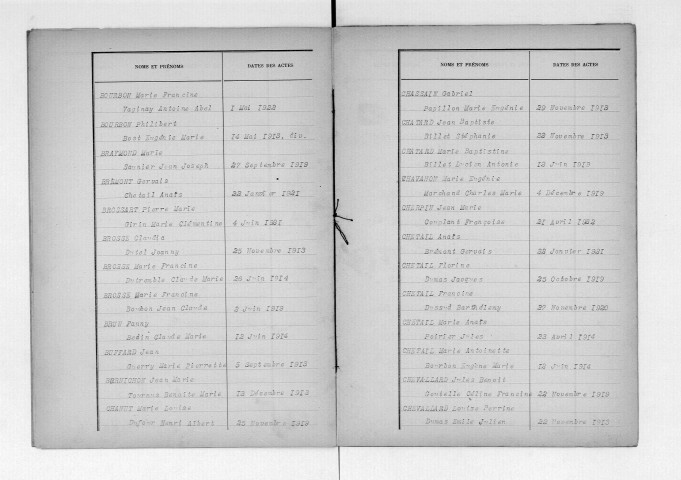 NOMS ET PRÉNOMS DATES DES ACTES
BOURBON Marie Francine
Vaginay Antoine Abel 1 Mai 1922
BOURBON Philibert
Eugénie Marie 14 Mai 1913, div.
BRAYMOND Marie
Jean Joseph 27 Septembre 1919
BRÉMONT Gervais
Chetail Anaïs 22 Janvier 1921
BROSSART Pierre Marie
Marie Clémentine 4 Juin 1921
BROSSE Claudia
Joanny 25 Novembre 1913
BROSSE Marie Francine
Claude Marie 20 Juin 1914
BROSSE Marie Francine
Jean Claude 2 Juin 1919
BRUN Fanny
Claude Marie 13 Juin 1914
BUFFARD Jean
Guerry Marie Pierrette 5 Septembre 1913
Jean Marie
Benoite Marie 12 Décembre 1912
Marie Louise
Dufour Henri Albert 22 Novembre 1919
NOMS ET PRÉNOMS DATES DES ACTES
CHASSAIN Gabriel
Papillon Marie Eugénie 29 Novembre 1913
CHATARD Jean Baptiste
Billet Stéphanie 22 Novembre 1913
CHATARD Marie Baptistine
Billet Antonin 13 Juin 1919
CHAVANON Marie Eugénie
Marchand Charles Marie 4 Décembre 1919
Jean Marie
Couplant Françoise 21 Avril 1922
CHETAIL Anaïs
Brémont Gervais 22 Janvier 1921
CHETAIL Florine
Dumas Jacques 25 Octobre 1919
CHETAIL Francine
Durand Barthélemy 27 Novembre 1920
CHETAIL Marie Anaïs
Poirier Jules 25 Avril 1914
CHETAIL Marie Antoinette
Bourbon Eugène Marie 13 Juin 1914
CHEVALLARD Jules Benoit
Céline Francine 22 Novembre 1919
CHEVALLARD Louise Perrine
Dumas Emile Julien 22 Novembre 1913